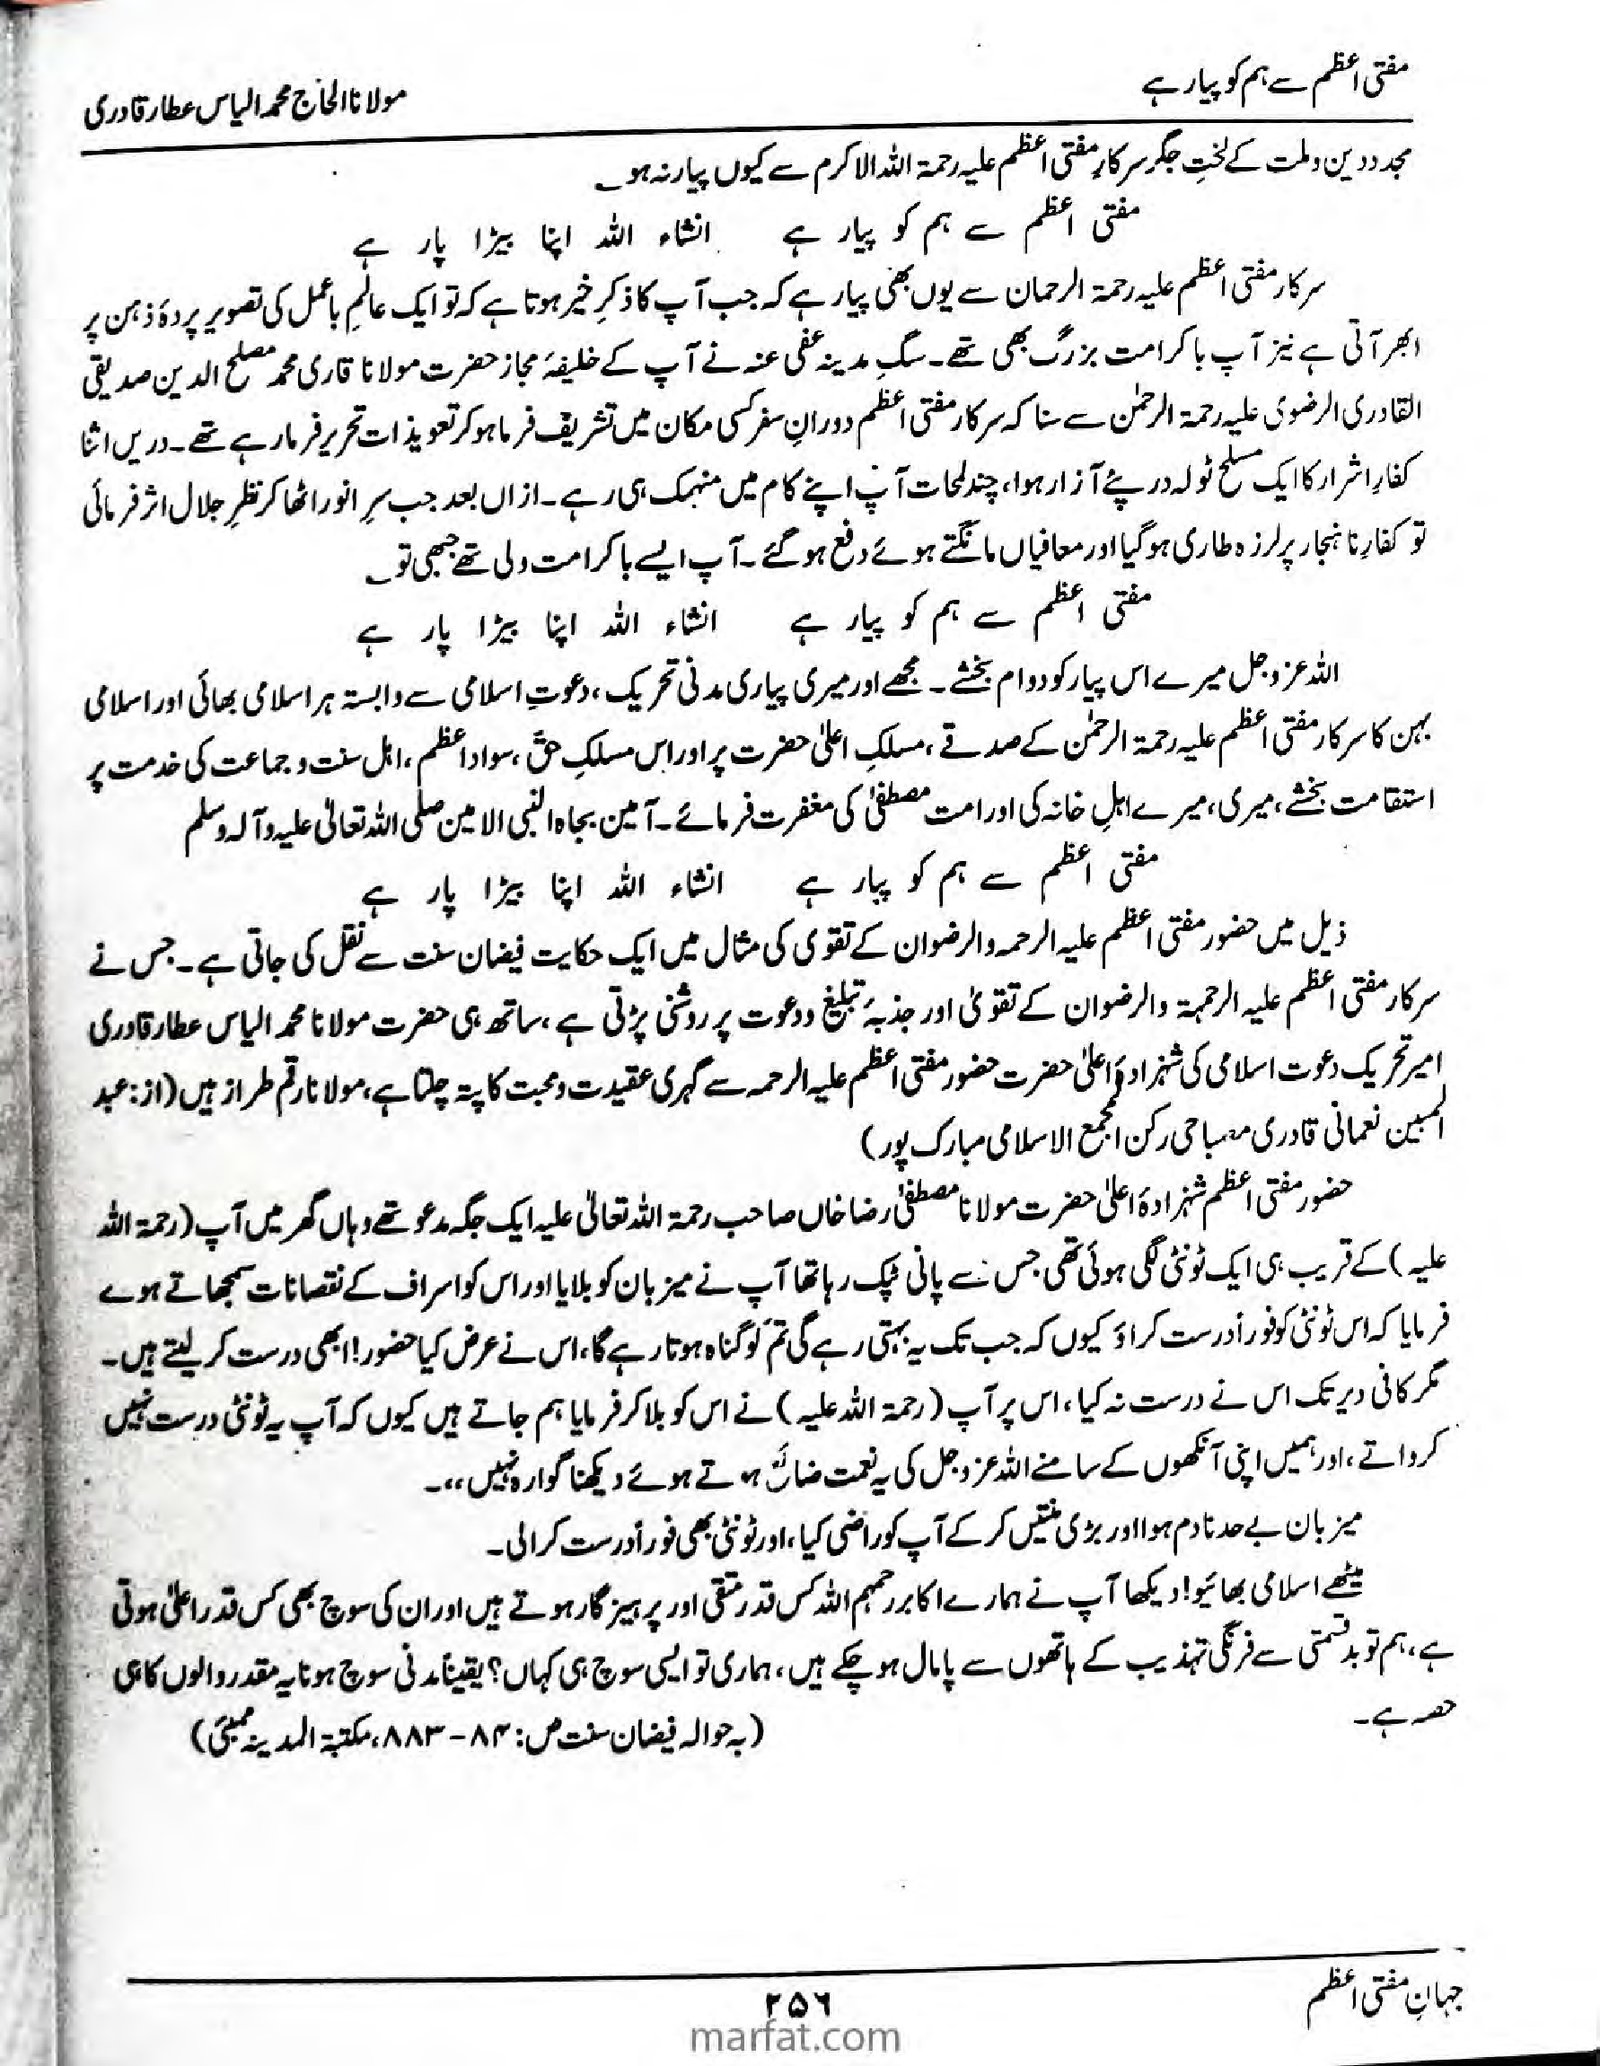 مفتی اعظم سے ہم کو پیار ہے
مولانا الحاج محمد الیاس عطار قادری
مجدد دین و ملت کے لختِ جگر سرکارِ مفتی اعظم علیہ رحمۃ اللہ الاکرم سے کیوں پیار نہ ہو ؎
مفتی اعظم سے ہم کو پیار ہے انشاء اللہ اپنا بیڑا پار ہے
سرکار مفتی اعظم علیہ رحمۃ الرحمان سے یوں بھی پیار ہے کہ جب آپ کا ذکرِ خیر ہوتا ہے کہ تو ایک عالمِ باعمل کی تصویر پردۂ ذہن پر
ابھر آتی ہے نیز آپ باکرامت بزرگ بھی تھے۔ سگِ مدینہ عفی عنہ نے آپ کے خلیفۂ مجاز حضرت مولانا قاری محمد مصلح الدین صدیقی
القادری الرضوی علیہ رحمۃ الرحمٰن سے سنا کہ سرکار مفتی اعظم دورانِ سفر کسی مکان میں تشریف فرما ہو کر تعویذات تحریر فرما رہے تھے۔ دریں اثنا
کفارِ اشرار کا ایک مسلح ٹولہ درپئے آزار ہوا، چند لمحات آپ اپنے کام میں منہمک ہی رہے۔ ازاں بعد جب سرِ انور اٹھا کر نظرِ جلال اثر فرمائی
تو کفارِ نا ہنجار پر لرزہ طاری ہو گیا اور معافیاں مانگتے ہوئے دفع ہو گئے۔ آپ ایسے باکرامت ولی تھے جبھی تو ؎
مفتی اعظم سے ہم کو پیار ہے انشاء اللہ اپنا بیڑا پار ہے
اللہ عزوجل میرے اس پیار کو دوام بخشے۔ مجھے اور میری پیاری مدنی تحریک، دعوتِ اسلامی سے وابستہ ہر اسلامی بھائی اور اسلامی
بہن کا سرکار مفتی اعظم علیہ رحمۃ الرحمٰن کے صدقے، مسلکِ اعلیٰ حضرت پر اور اس مسلکِ حق، سواد اعظم، اہل سنت و جماعت کی خدمت پر
استقامت بخشے، میری، میرے اہلِ خانہ کی اور امت مصطفیٰ کی مغفرت فرمائے۔ آمین بجاہ النبی الامین صلی اللہ تعالیٰ علیہ وآلہ وسلم
مفتی اعظم سے ہم کو پیار ہے انشاء اللہ اپنا بیڑا پار ہے
ذیل میں حضور مفتی اعظم علیہ الرحمہ والرضوان کے تقوی کی مثال میں ایک حکایت فیضان سنت سے نقل کی جاتی ہے۔ جس نے
سرکار مفتی اعظم علیہ الرحمۃ والرضوان کے تقویٰ اور جذبۂ تبلیغ و دعوت پر روشنی پڑتی ہے، ساتھ ہی حضرت مولانا محمد الیاس عطار قادری
امیر تحریک دعوت اسلامی کی شہزادۂ اعلیٰ حضرت حضور مفتی اعظم علیہ الرحمہ سے گہری عقیدت و محبت کا پتہ چلتا ہے، مولانا رقم طراز ہیں (از: عبد
المبین نعمانی قادری مصباحی رکن المجمع الاسلامی مبارک پور)
حضور مفتی اعظم شہزادۂ اعلیٰ حضرت مولانا مصطفیٰ رضا خاں صاحب رحمۃ اللہ تعالیٰ علیہ ایک جگہ مدعو تھے وہاں گھر میں آپ (رحمۃ اللہ
علیہ) کے قریب ہی ایک ٹونٹی لگی ہوئی تھی جس سے پانی ٹپک رہا تھا آپ نے میزبان کو بلایا اور اس کو اسراف کے نقصانات سمجھاتے ہوے
فرمایا کہ اس ٹونٹی کو فوراً درست کراؤ کیوں کہ جب تک یہ بہتی رہے گی تم کو گناہ ہوتا رہے گا، اس نے عرض کیا حضور! ابھی درست کر لیتے ہیں۔
مگر کافی دیر تک اس نے درست نہ کیا، اس پر آپ (رحمۃ اللہ علیہ) نے اس کو بلا کر فرمایا ہم جاتے ہیں کیوں کہ آپ یہ ٹونٹی درست نہیں
کرواتے، اور ہمیں اپنی آنکھوں کے سامنے اللہ عزوجل کی یہ نعمت ضائع ہوتے ہوئے دیکھنا گوارہ نہیں،،۔
میزبان بے حد نادم ہوا اور بڑی منتیں کر کے آپ کو راضی کیا، اور ٹونٹی بھی فوراً درست کرالی۔
میٹھے اسلامی بھائیو! دیکھا آپ نے ہمارے اکابر رحمہم اللہ کس قدر متقی اور پرہیز گار ہوتے ہیں اور ان کی سوچ بھی کس قدر اعلیٰ ہوتی
ہے، ہم تو بدقسمتی سے فرنگی تہذیب کے ہاتھوں سے پامال ہو چکے ہیں، ہماری تو ایسی سوچ ہی کہاں؟ یقیناً مدنی سوچ ہونا یہ مقدر والوں کا ہی
حصہ ہے۔
(بہ حوالہ فیضان سنت ص: ۸۴-۸۸۳، مکتبۃ المدینہ ممبئی)
جہانِ مفتی اعظم
۲۵۶
marfat.com